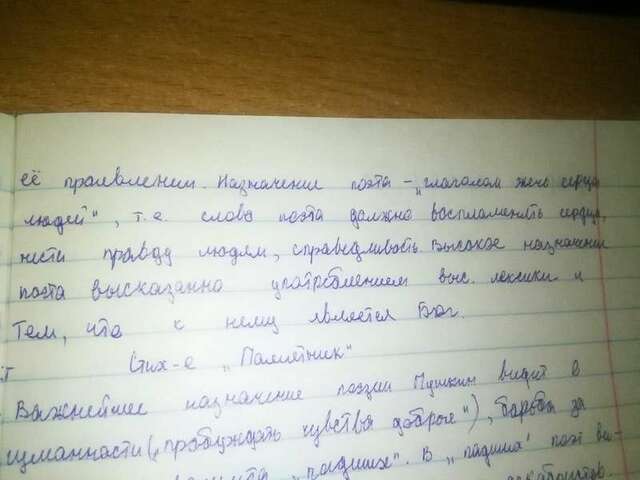 её проявлении. Назначение поэта – „глаголом жечь сердца
людей", т.е. слово поэта должно воспламенять сердца,
нести правду людям, справедливость. Высокое назначение
поэта высказанно употреблением выс. лексики и
тем, что к нему является Бог.
Стих-е „Памятник"
Важнейшее назначение поэзии Пушкин видит в
гуманности („пробуждать чувства добрые"), борьба за
„падших". В „падших" поэт